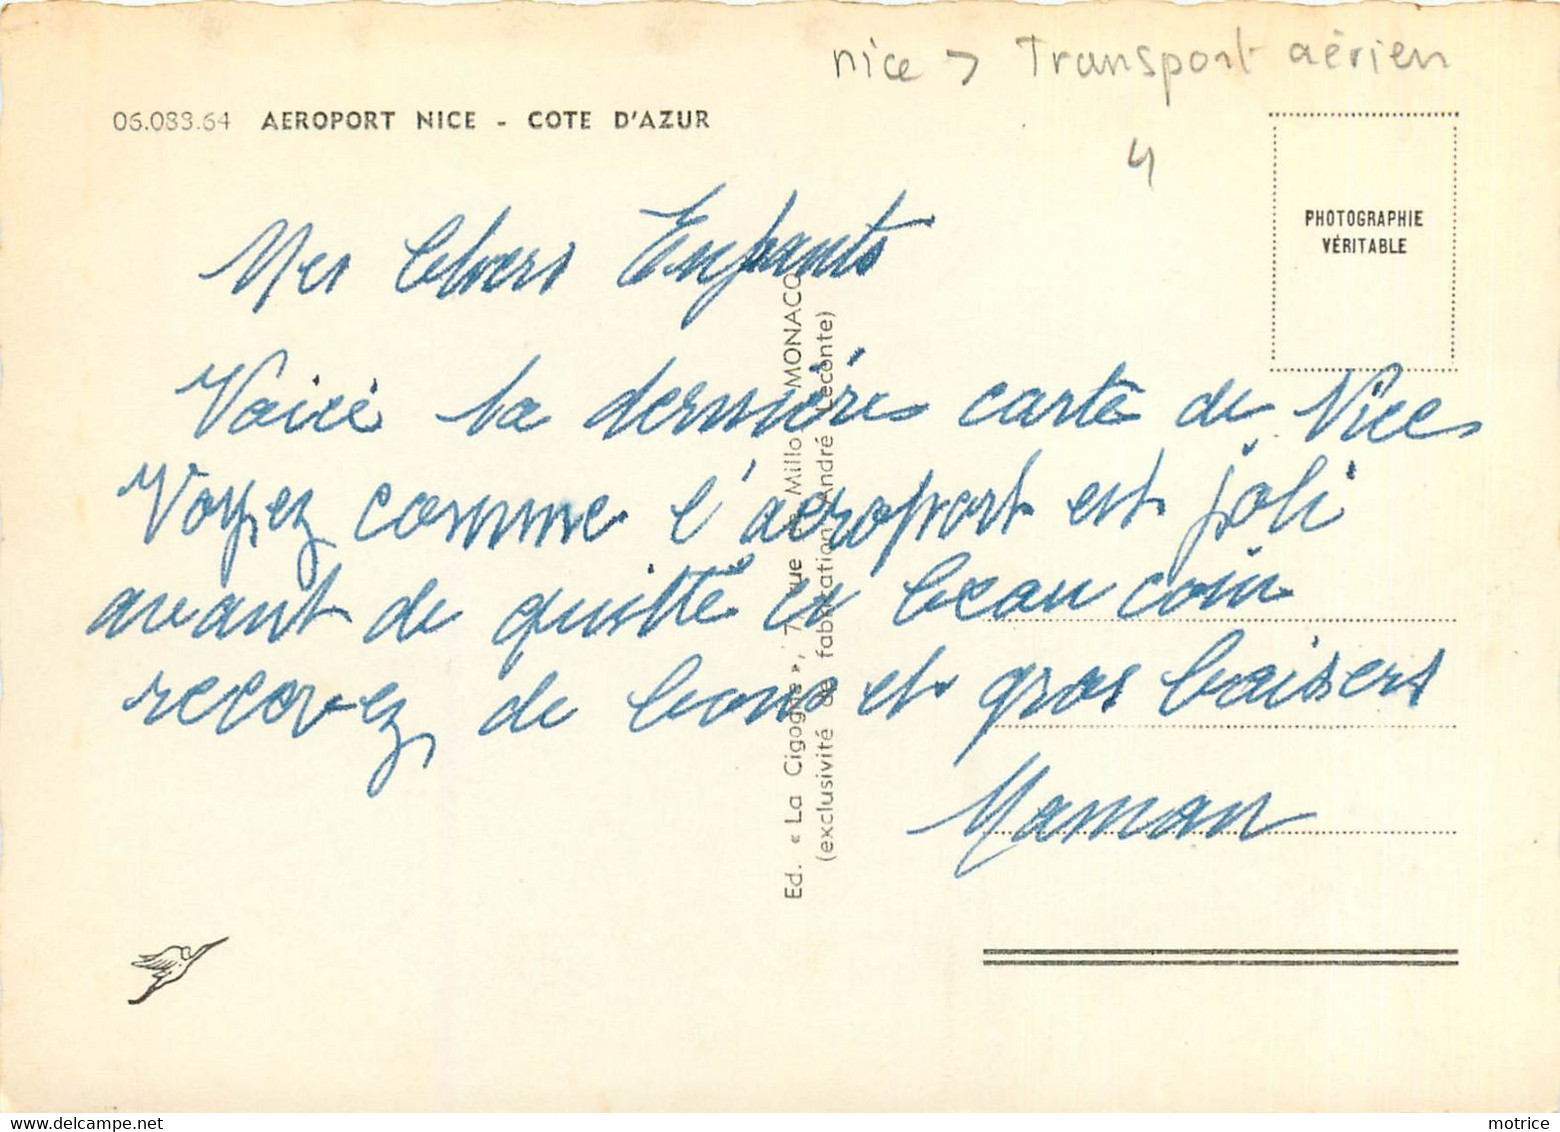 nice > Transport aérien
4
06.083.64 AEROPORT NICE - COTE D'AZUR
PHOTOGRAPHIE
VÉRITABLE
Mes Chers Enfants
Voici la dernière carte de Nice
Voyez comme l'aéroport est joli
avant de quitté ce beau coin
recevez de bons et gros baisers
Maman
Ed. « La Cigogne », 7 rue Millo MONACO
(exclusivité de fabrication André Leconte)
www.delcampe.net
motrice